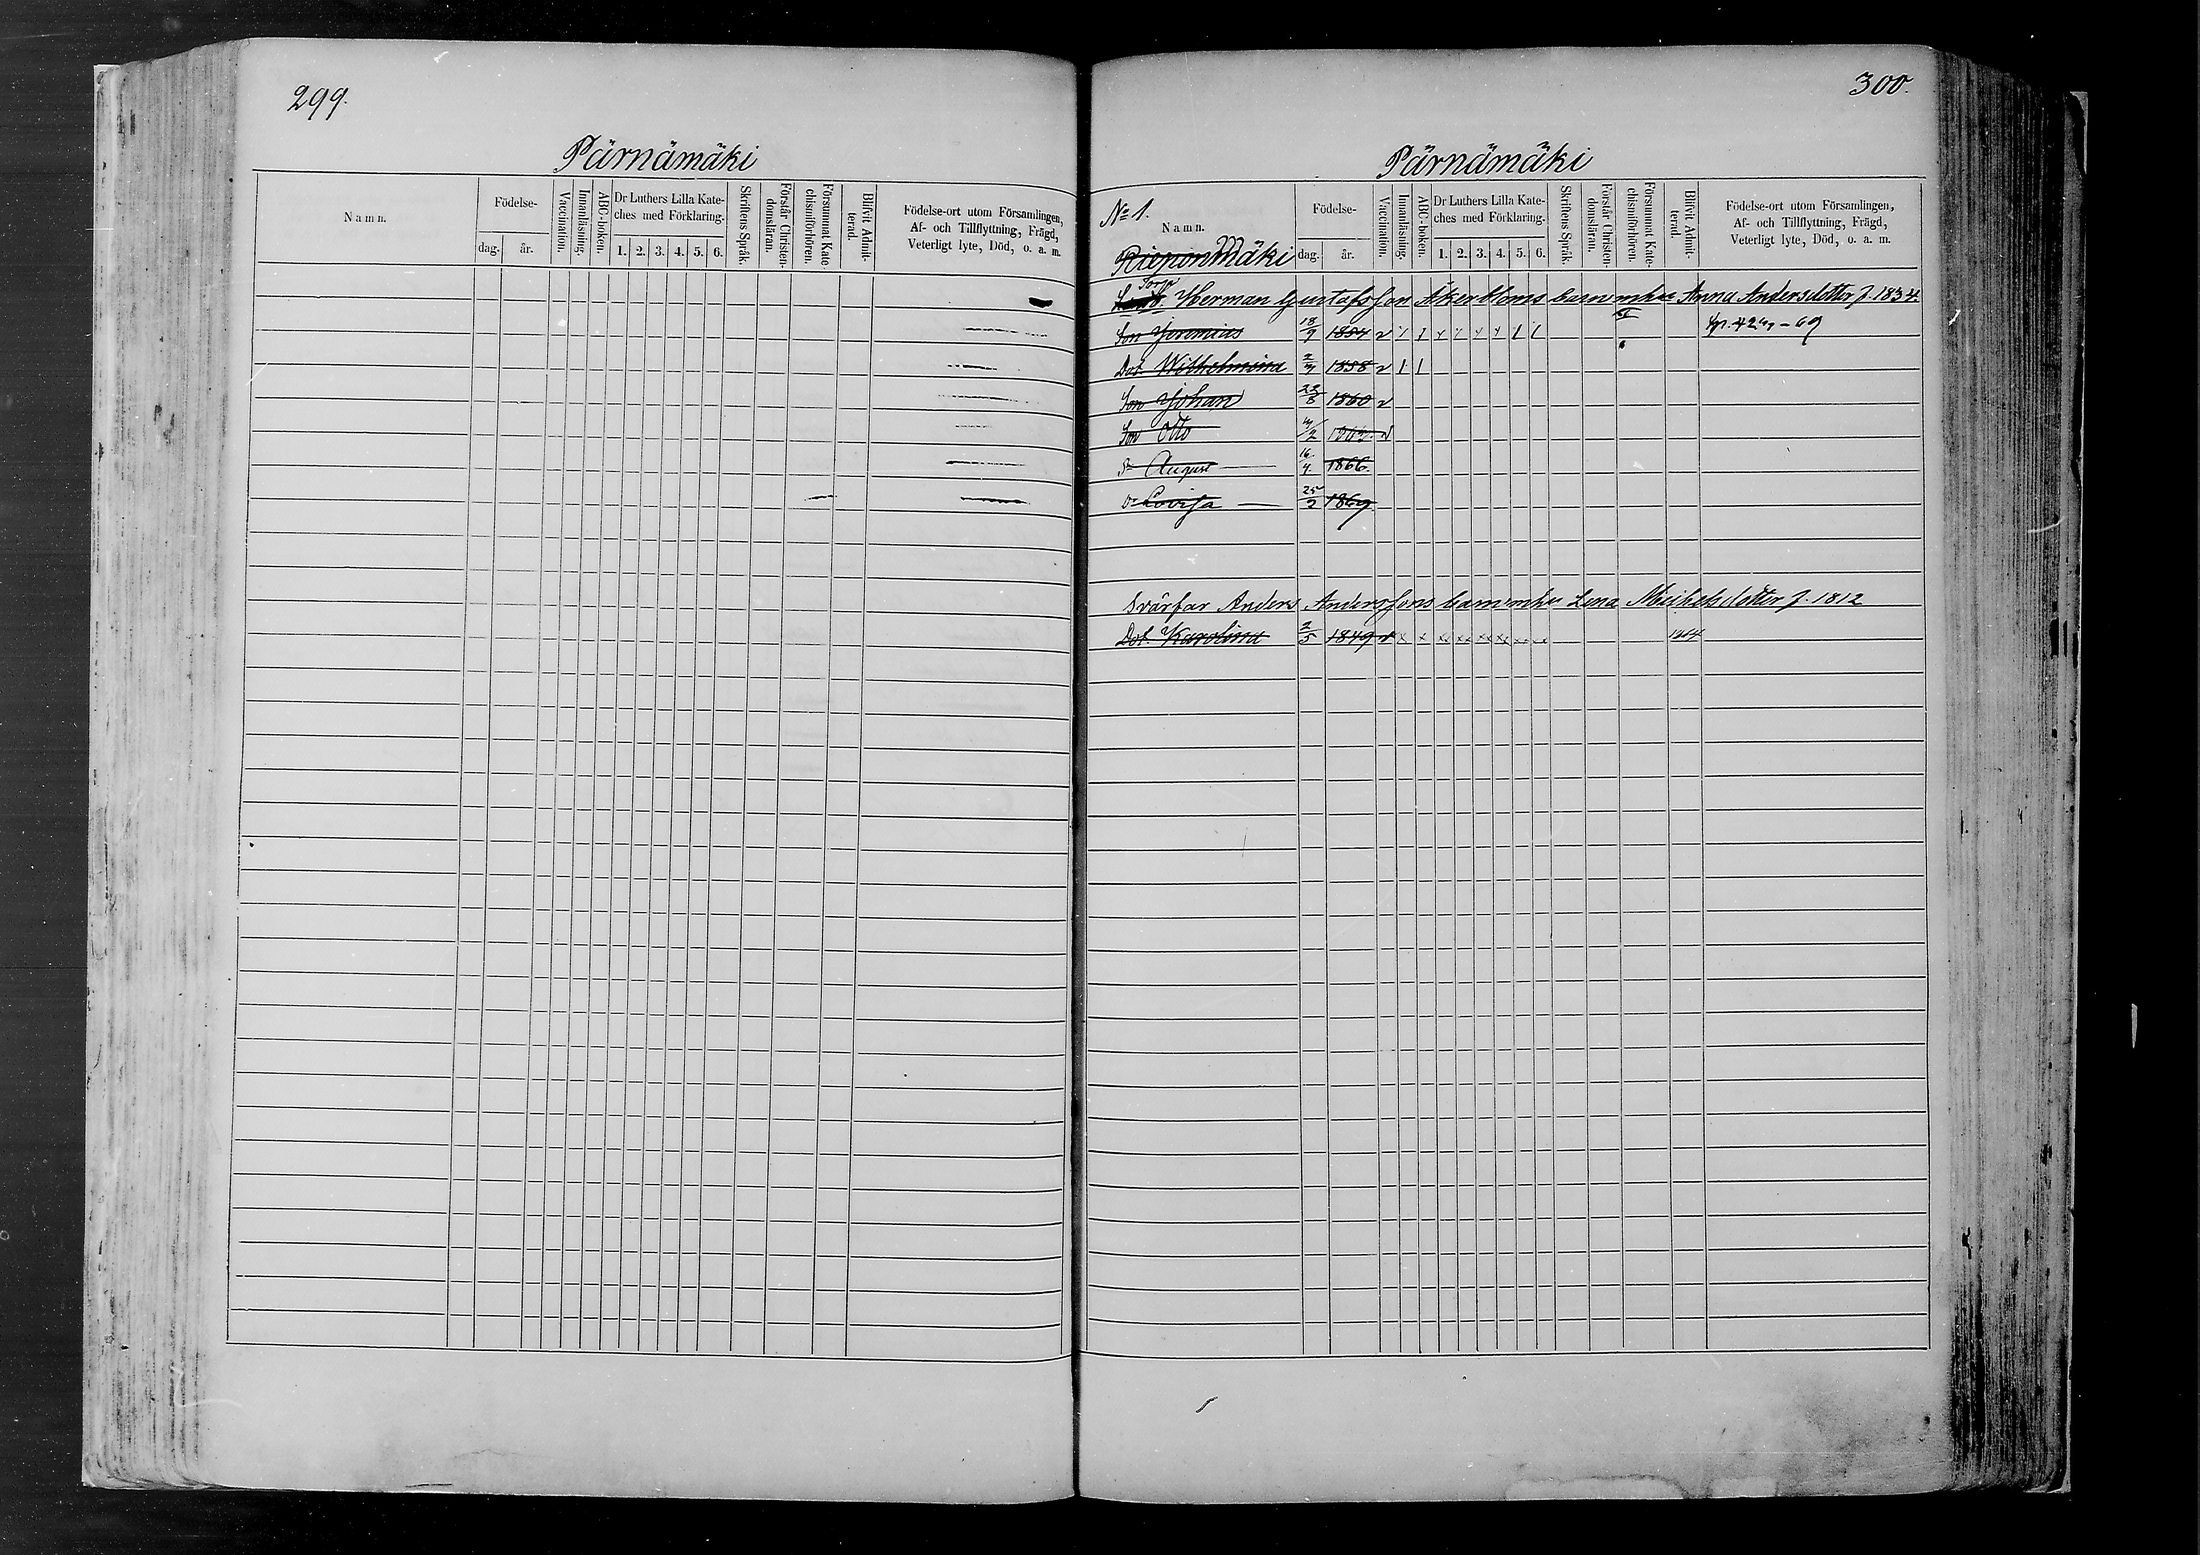 299.
Pärnämäki
Namn.
Födelse-
dag. år.
Vaccination.
Innanläsning.
ABC-boken.
Dr Luthers Lilla Kate-
ches med Förklaring.
1. 2. 3. 4. 5. 6.
Skriftens Språk.
Förstår Christen-
domsläran.
Försummat Kate-
chismiförhören.
Blifvit Admit-
terad.
Födelse-ort utom Församlingen,
Af- och Tillflyttning, Frägd,
Veterligt lyte, Död, o. a. m.
300.
Pärnämäki
No 1.
Namn.
Födelse-
dag. år.
Vaccination.
Innanläsning.
ABC-boken.
Dr Luthers Lilla Kate-
ches med Förklaring.
1. 2. 3. 4. 5. 6.
Skriftens Språk.
Förstår Christen-
domsläran.
Försummat Kate-
chismiförhören.
Blifvit Admit-
terad.
Födelse-ort utom Församlingen,
Af- och Tillflyttning, Frägd,
Veterligt lyte, Död, o. a. m.
Mäki
Torp. Herman Gustafsson Åkerbloms barn m hu Anna Andersdotter f. 1834.
Son Jeremias 18/9 1854 v
Dot. Wilhelmina 1858 v
Son Johan 1860 v
Son Otto
Sn August 16/4 1866.
Dr Lovisa 25/2 1869
Svärfar Anders Anderssons barn m hu Lena Michelsdotter f. 1812
Dot. Karolina 2/5 1849 v 1864